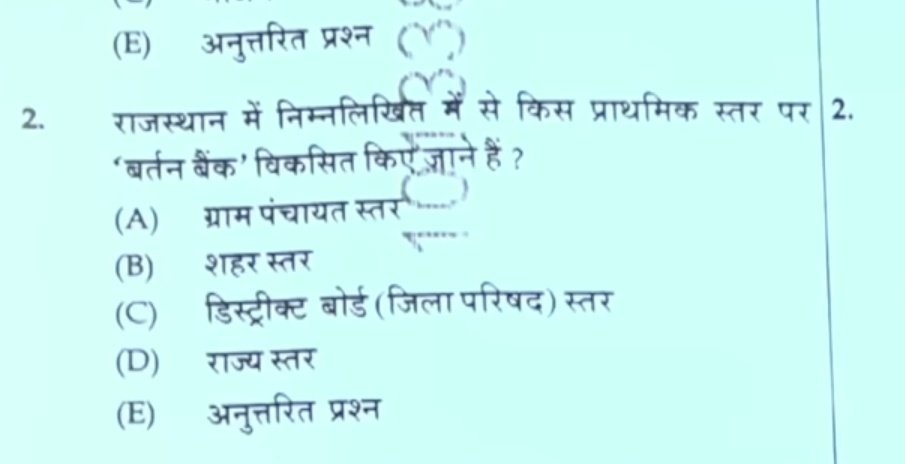 (E) अनुत्तरित प्रश्न
2. राजस्थान में निम्नलिखित में से किस प्राथमिक स्तर पर 2.
‘बर्तन बैंक’ विकसित किए जाने हैं ?
(A) ग्राम पंचायत स्तर
(B) शहर स्तर
(C) डिस्ट्रीक्ट बोर्ड (जिला परिषद) स्तर
(D) राज्य स्तर
(E) अनुत्तरित प्रश्न